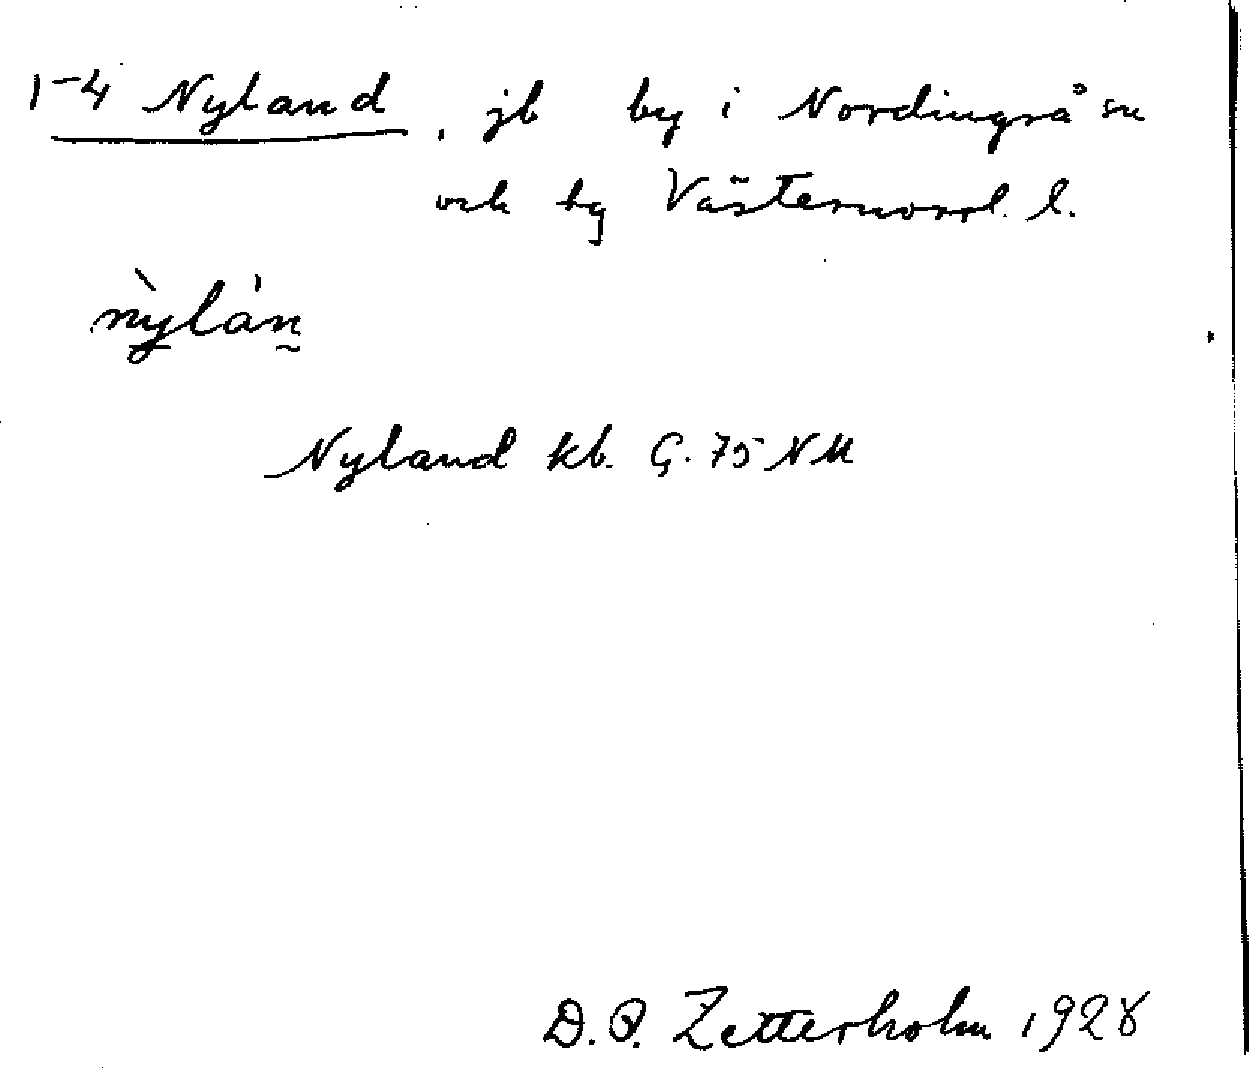 1-4 Nyland, jb by i Nordingrå sn
och tg Västernorrl. l.
nỳ̠lá̀ñ
Nyland kb. G. 75 NM
D. O. Zetterholm 1928